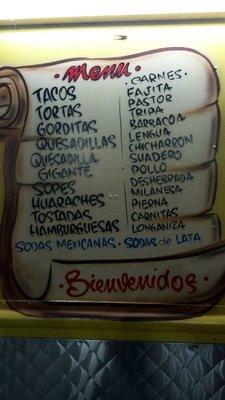 Menu
TACOS
TORTAS
GORDITAS
QUESADILLAS
QUESADILLA
GIGANTE
SOPES
HUARACHES
TOSTADAS
HAMBURGUESAS
·CARNES·
FAJITA
PASTOR
TRIPA
BARBACOA
LENGUA
CHICHARRON
SUADERO
POLLO
DESHEBRADA
MILANESA
PIERNA
CARNITAS
LONGANIZA
SODAS MEXICANAS · SODAS de LATA
·Bienvenidos·